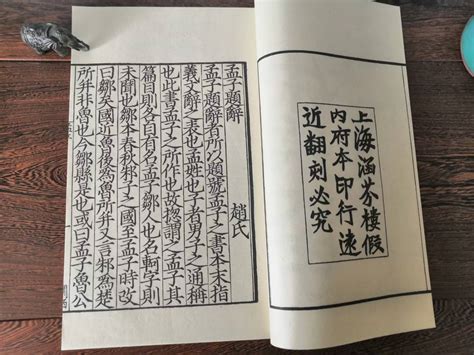 上海涵芬樓假
內府本印行遠
近翻刻必究
孟子題辭 趙氏
孟子題辭者所以題號孟子之書本末指
義文辭之表也孟姓也子者男子之通稱
也此書孟子之所作也故揔謂之孟子其
篇目則各自有名孟子鄒人也名軻字則
未聞也鄒本春秋邾子之國至孟子時改
曰鄒矣國近魯後爲魯所并又言邾爲楚
所并非魯也今鄒縣是也或曰孟子魯公